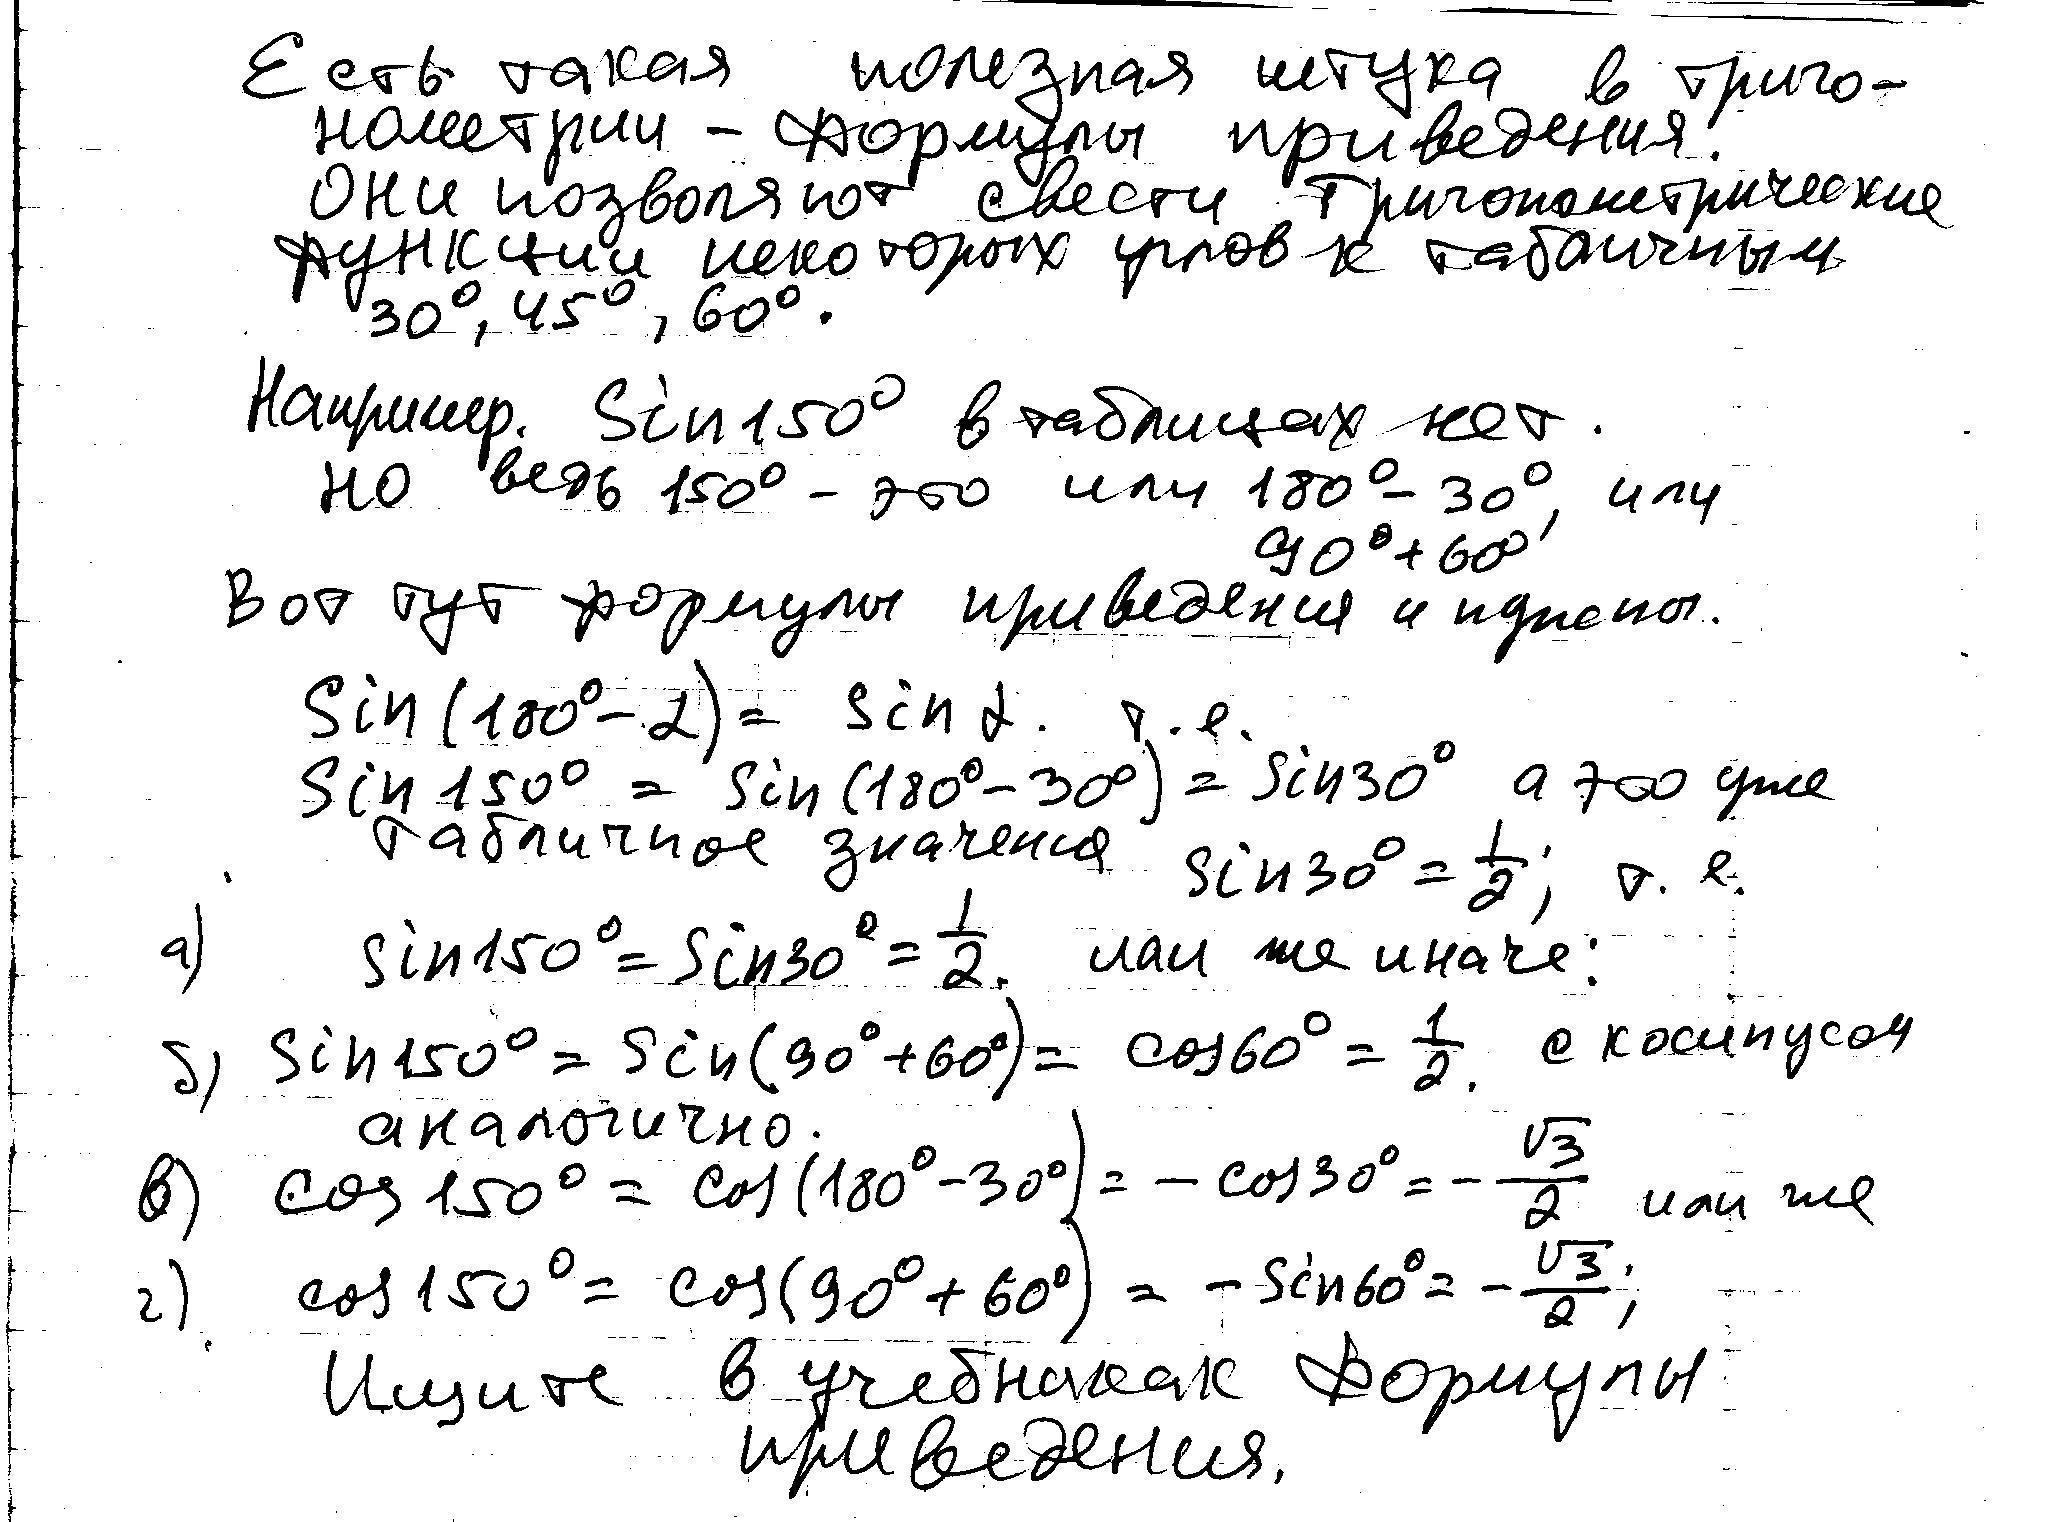 Есть такая полезная штука в триго-
нометрии - формулы приведения.
Они позволяют свести тригонометрические
функции некоторых углов к табличным
30°, 45°, 60°.
Например. Sin150° в таблицах нет.
но ведь 150° - это или 180° - 30°, или
90° + 60°
Вот тут формулы приведения и нужны.
Sin(180° - α) = Sin α. т.е.
Sin150° = Sin(180° - 30°) = Sin30° а это уже
табличное значение Sin30° = 1/2; т.е.
а) Sin150° = Sin30° = 1/2. или же иначе:
б) Sin150° = Sin(90° + 60°) = cos60° = 1/2. с косинусом
аналогично.
в) cos150° = cos(180° - 30°) = -cos30° = -√3/2 или же
г) cos150° = cos(90° + 60°) = -Sin60° = -√3/2;
Ищите в учебниках формулы
приведения.